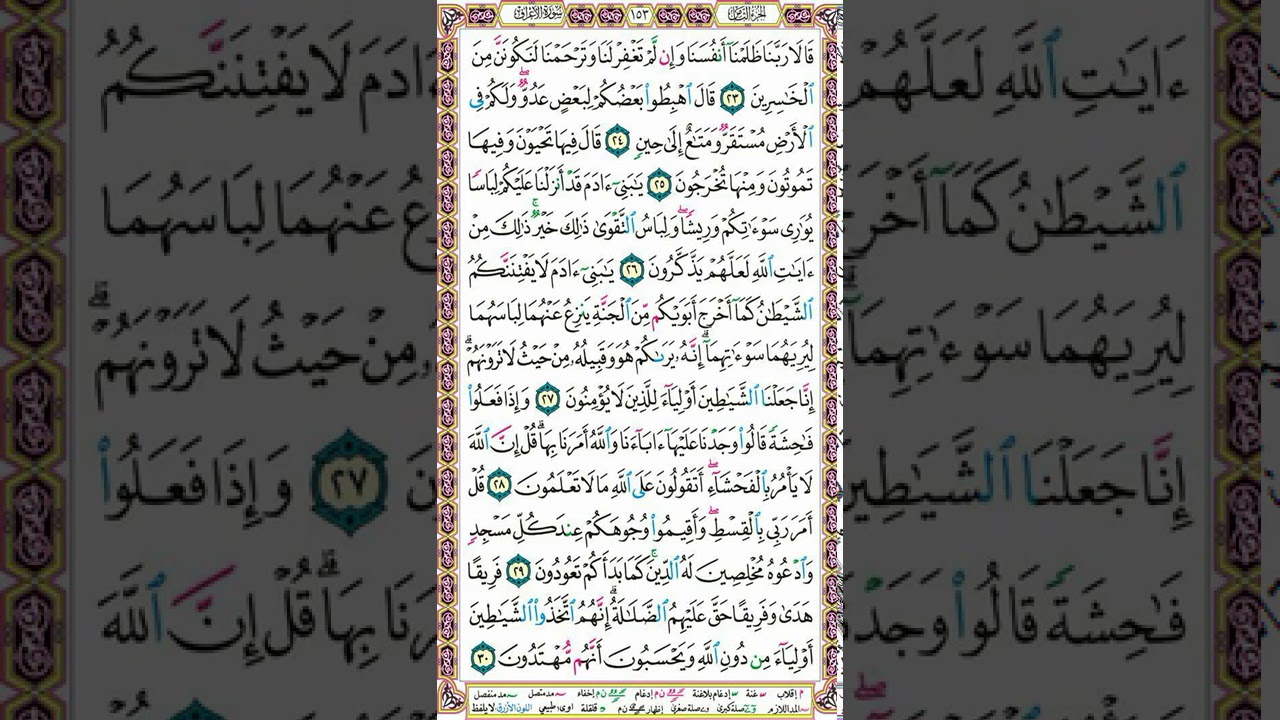 سورة الأعراف ١٥٣ الجزء الثامن
قَالَا رَبَّنَا ظَلَمْنَآ أَنفُسَنَا وَإِن لَّمْ تَغْفِرْ لَنَا وَتَرْحَمْنَا لَنَكُونَنَّ مِنَ
ٱلْخَٰسِرِينَ ٢٣ قَالَ ٱهْبِطُوا۟ بَعْضُكُمْ لِبَعْضٍ عَدُوٌّۖ وَلَكُمْ فِى
ٱلْأَرْضِ مُسْتَقَرٌّ وَمَتَٰعٌ إِلَىٰ حِينٍ ٢٤ قَالَ فِيهَا تَحْيَوْنَ وَفِيهَا
تَمُوتُونَ وَمِنْهَا تُخْرَجُونَ ٢٥ يَٰبَنِىٓ ءَادَمَ قَدْ أَنزَلْنَا عَلَيْكُمْ لِبَاسًا
يُوَٰرِى سَوْءَٰتِكُمْ وَرِيشًاۖ وَلِبَاسُ ٱلتَّقْوَىٰ ذَٰلِكَ خَيْرٌۚ ذَٰلِكَ مِنْ
ءَايَٰتِ ٱللَّهِ لَعَلَّهُمْ يَذَّكَّرُونَ ٢٦ يَٰبَنِىٓ ءَادَمَ لَا يَفْتِنَنَّكُمُ
ٱلشَّيْطَٰنُ كَمَآ أَخْرَجَ أَبَوَيْكُم مِّنَ ٱلْجَنَّةِ يَنزِعُ عَنْهُمَا لِبَاسَهُمَا
لِيُرِيَهُمَا سَوْءَٰتِهِمَآۗ إِنَّهُۥ يَرَىٰكُمْ هُوَ وَقَبِيلُهُۥ مِنْ حَيْثُ لَا تَرَوْنَهُمْۗ
إِنَّا جَعَلْنَا ٱلشَّيَٰطِينَ أَوْلِيَآءَ لِلَّذِينَ لَا يُؤْمِنُونَ ٢٧ وَإِذَا فَعَلُوا۟
فَٰحِشَةً قَالُوا۟ وَجَدْنَا عَلَيْهَآ ءَابَآءَنَا وَٱللَّهُ أَمَرَنَا بِهَاۗ قُلْ إِنَّ ٱللَّهَ
لَا يَأْمُرُ بِٱلْفَحْشَآءِۖ أَتَقُولُونَ عَلَى ٱللَّهِ مَا لَا تَعْلَمُونَ ٢٨ قُلْ
أَمَرَ رَبِّى بِٱلْقِسْطِۖ وَأَقِيمُوا۟ وُجُوهَكُمْ عِندَ كُلِّ مَسْجِدٍ
وَٱدْعُوهُ مُخْلِصِينَ لَهُ ٱلدِّينَۚ كَمَا بَدَأَكُمْ تَعُودُونَ ٢٩ فَرِيقًا
هَدَىٰ وَفَرِيقًا حَقَّ عَلَيْهِمُ ٱلضَّلَٰلَةُۗ إِنَّهُمُ ٱتَّخَذُوا۟ ٱلشَّيَٰطِينَ
أَوْلِيَآءَ مِن دُونِ ٱللَّهِ وَيَحْسَبُونَ أَنَّهُم مُّهْتَدُونَ ٣٠
م إقلاب غنة إدغام بلاغنة ن م إدغام ن م إخفاء مد متصل مد منفصل
المد اللازم صلة كبرى صلة صغرى إظهار ن م قلقلة اوى؛ طبيعي اللون الأزرق لا يلفظ